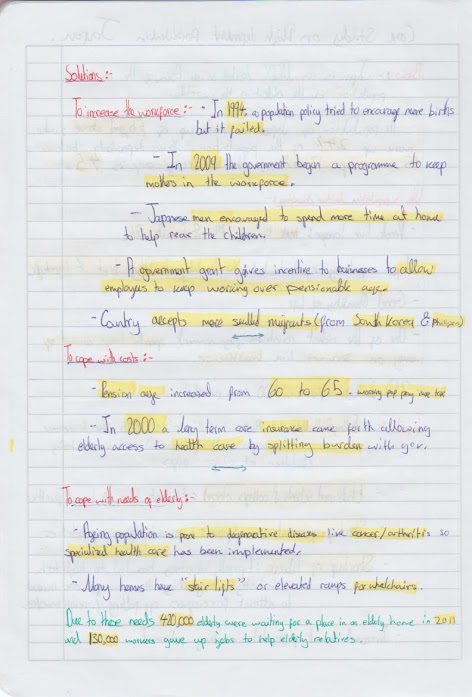 Solutions :-
To increase the workforce :- - In 1994, a population policy tried to encourage more births
but it failed.
- In 2009 the government began a programme to keep
mothers in the workforce.
- Japanese men encouraged to spend more time at home
to help rear the children.
- A government grant gives incentive to businesses to allow
employees to keep working over pensionable age.
- Country accepts more skilled migrants (from South Korea &
To cope with costs :-
- Pension age increased from 60 to 65. - working pop pay more tax
- In 2000 a long term care insurance came forth allowing
elderly access to health care by splitting burden with gov.
To cope with needs of elderly :-
- Ageing population is prone to degenerative diseases like cancer/arthritis so
specialized health care has been implemented.
- Many homes have "stair lifts" or elevated ramps for wheelchairs.
Due to these needs 420,000 elderly were waiting for a place in an elderly home in 2011
and 130,000 workers gave up jobs to help elderly relatives.